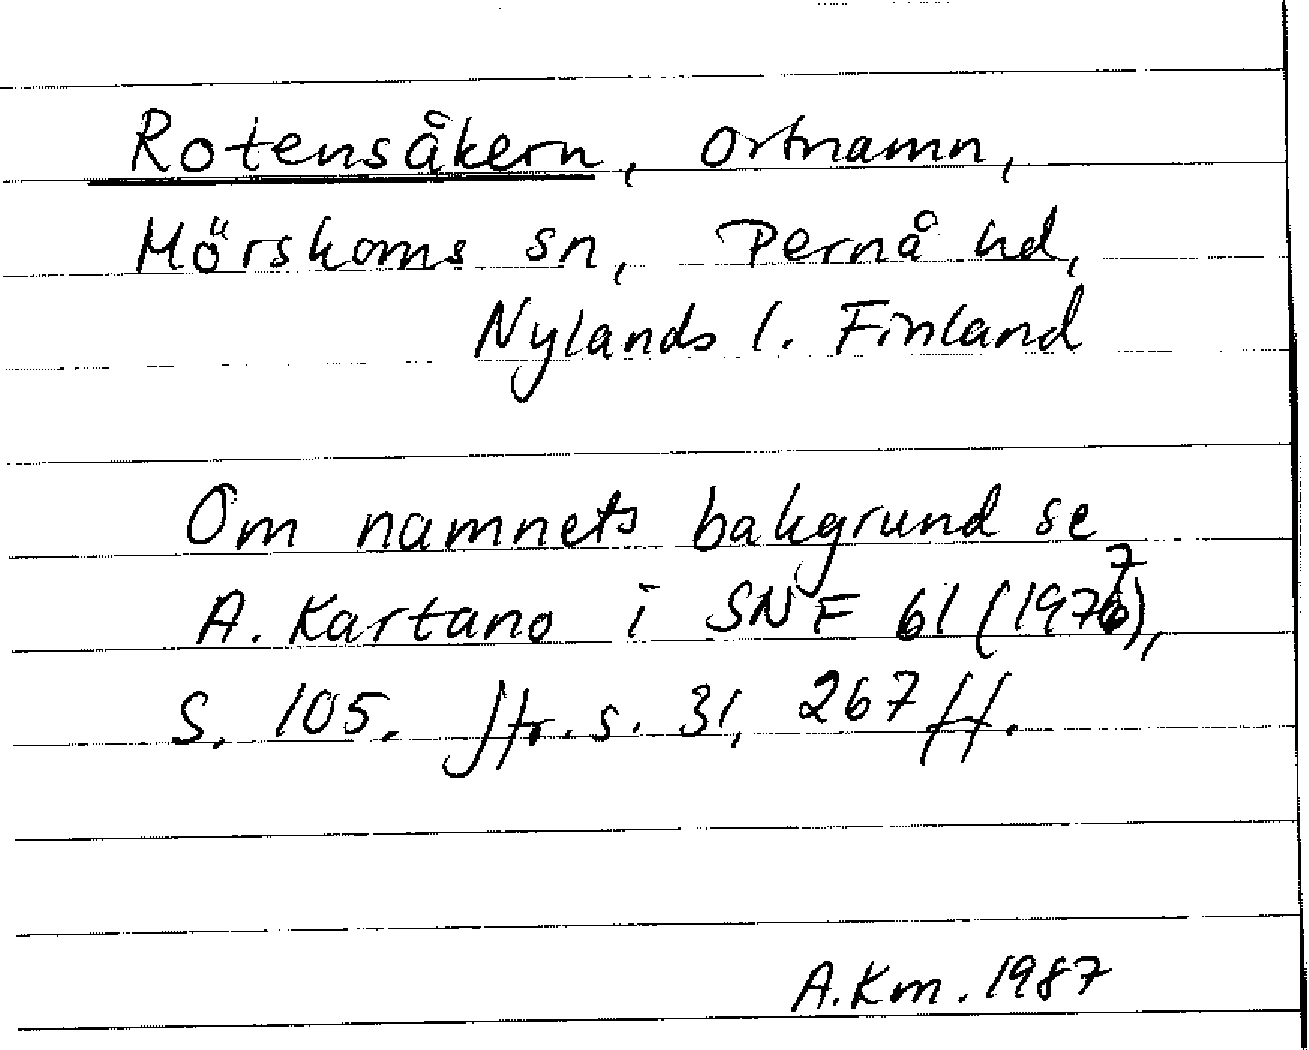 Rotensåkern, ortnamn,
Mörskoms sn, Pernå hd,
Nylands l. Finland
Om namnets bakgrund se
A. Kartano i SNF 61 (1977),
S. 105. Jfr. s. 31, 267 ff.
A.Km. 1987